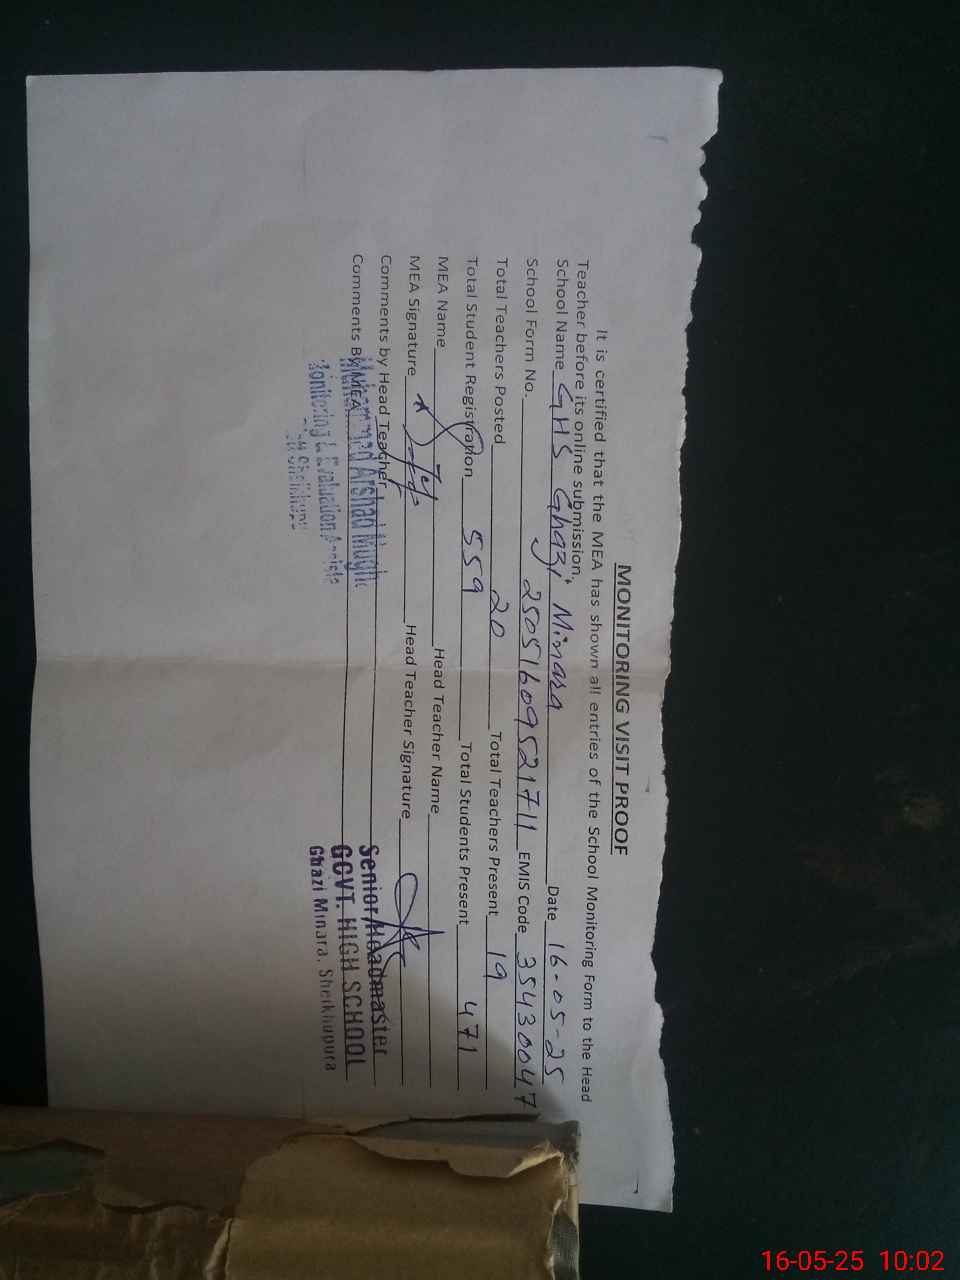 MONITORING VISIT PROOF
It is certified that the MEA has shown all entries of the School Monitoring Form to the Head
Teacher before its online submission.
School Name GHS Ghazi Minara Date 16-05-25
School Form No. 25051609521711 EMIS Code 35430047
Total Teachers Posted 20 Total Teachers Present 19
Total Student Registration 559 Total Students Present 471
MEA Name Head Teacher Name
MEA Signature Head Teacher Signature
Comments by Head Teacher
Comments By MEA
Muhammad Arshad Mughal
Monitoring & Evaluation
Sheikhupura
Senior Headmaster
GOVT. HIGH SCHOOL
Ghazi Minara, Sheikhupura
16-05-25 10:02